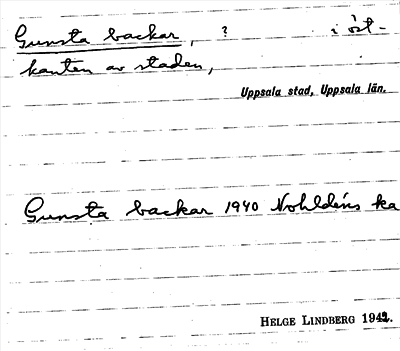 Gunsta backar, ? i öst-
kanten av staden,
Uppsala stad, Uppsala län.
Gunsta backar 1940 Nohldéns ka
HELGE LINDBERG 1942.